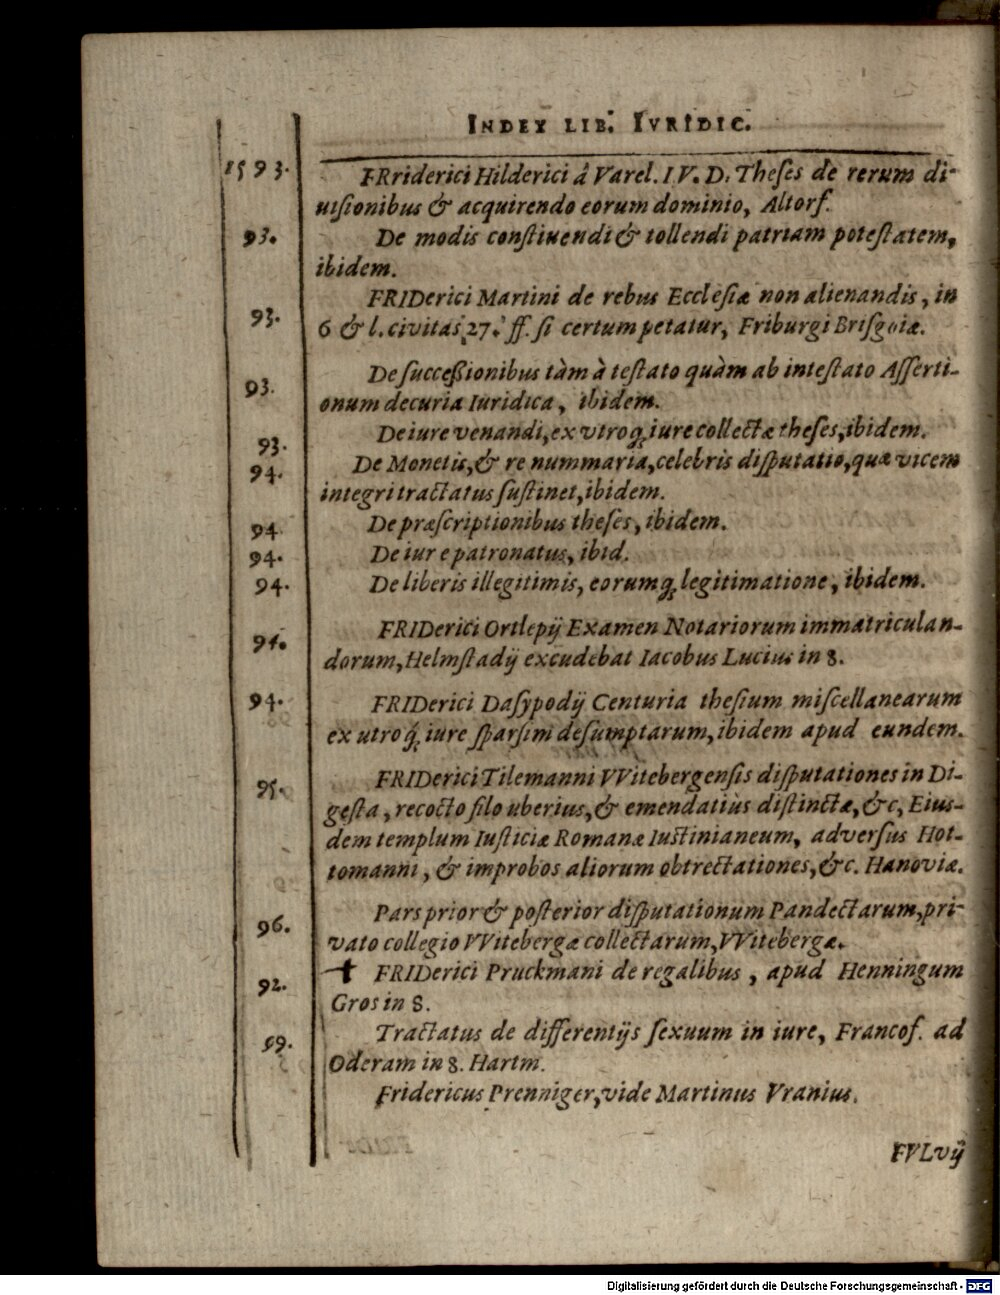 INDEX LIB. IVRIDIC.
1593. FRriderici Hilderici â Varel. I.V.D. Theſes de rerum di-
uiſionibus & acquirendo eorum dominio, Altorf.
93. De modis conſtiuendi & tollendi patriam poteſtatem,
ibidem.
FRIDerici Martini de rebus Eccleſiæ non alienandis, in
93. 6 & l. civitas, 27. ff. ſi certum petatur, Friburgi Briſgoiæ.
De ſucceßionibus tàm à teſtato quàm ab inteſtato Aſſerti-
93. onum decuria Iuridica, ibidem.
93. De iure venandi, ex vtroq; iure collectæ theſes, ibidem.
94. De Monetis, & re nummaria, celebris diſputatio, quæ vicem
integri tractatus ſuſtinet, ibidem.
94. De præſcriptionibus theſes, ibidem.
94. De iure patronatus, ibid.
94. De liberis illegitimis, eorumq; legitimatione, ibidem.
FRIDerici Ortlepij Examen Notariorum immatriculan-
94. dorum, Helmſtadij excudebat Iacobus Lucius in 8.
94. FRIDerici Daſypodij Centuria theſium miſcellanearum
ex utroq; iure ſparſim deſumptarum, ibidem apud eundem.
95. FRIDerici Tilemanni VVitebergenſis diſputationes in Di-
geſta, recocto filo uberius, & emendatiùs diſtinctæ, &c, Eius-
dem templum Iuſticiæ Romanæ Iuſtinianeum, adverſus Hot-
tomanni, & improbos aliorum obtrectationes, &c. Hanoviæ.
Pars prior & poſterior diſputationum Pandectarum, pri-
96. vato collegio VVitebergæ collectarum, VVitebergæ.
92. ✝ FRIDerici Pruckmani de regalibus, apud Henningum
Gros in 8.
Tractatus de differentijs ſexuum in iure, Francof. ad
99. Oderam in 8. Hartm.
Fridericus Prenniger, vide Martinus Vranius.
FVLvij
Digitalisierung gefördert durch die Deutsche Forschungsgemeinschaft - DFG